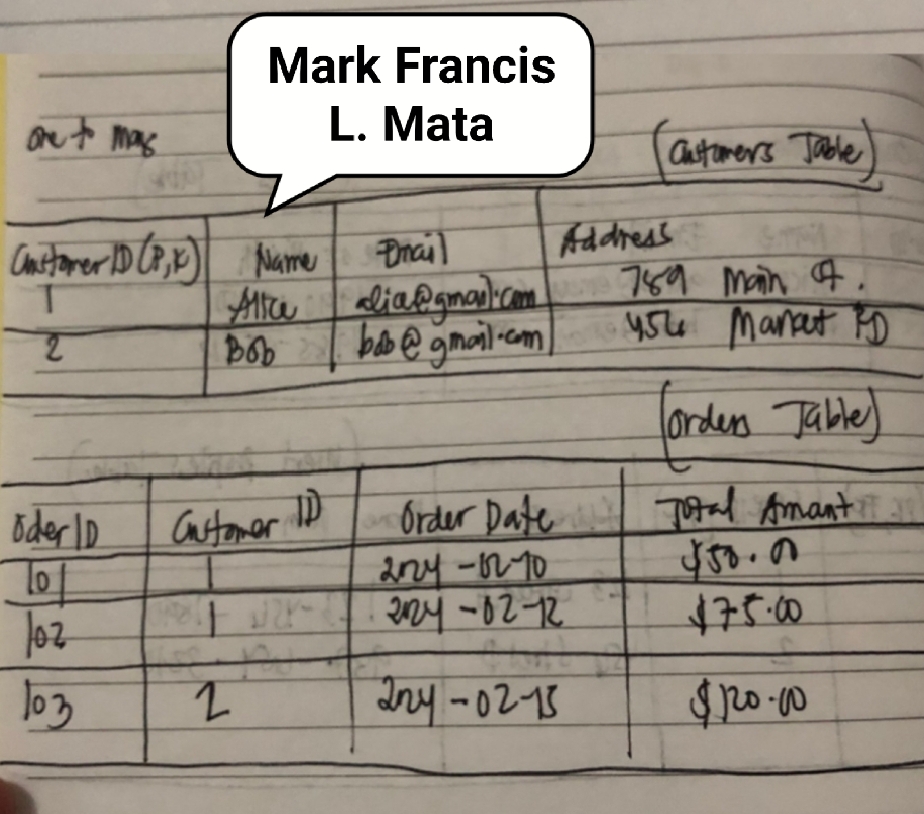 Mark Francis
L. Mata
one to many
(Customers Table)
Customer ID (P,K) Name Email Address
1 Alice alice@gmail.com 789 Main st.
2 Bob bob@gmail.com 456 Market RD
(Orders Table)
Oder ID Customer ID Order Date Total Amant
101 1 2024-02-10 $50.00
102 1 2024-02-12 $75.00
103 2 2024-02-15 $120.00